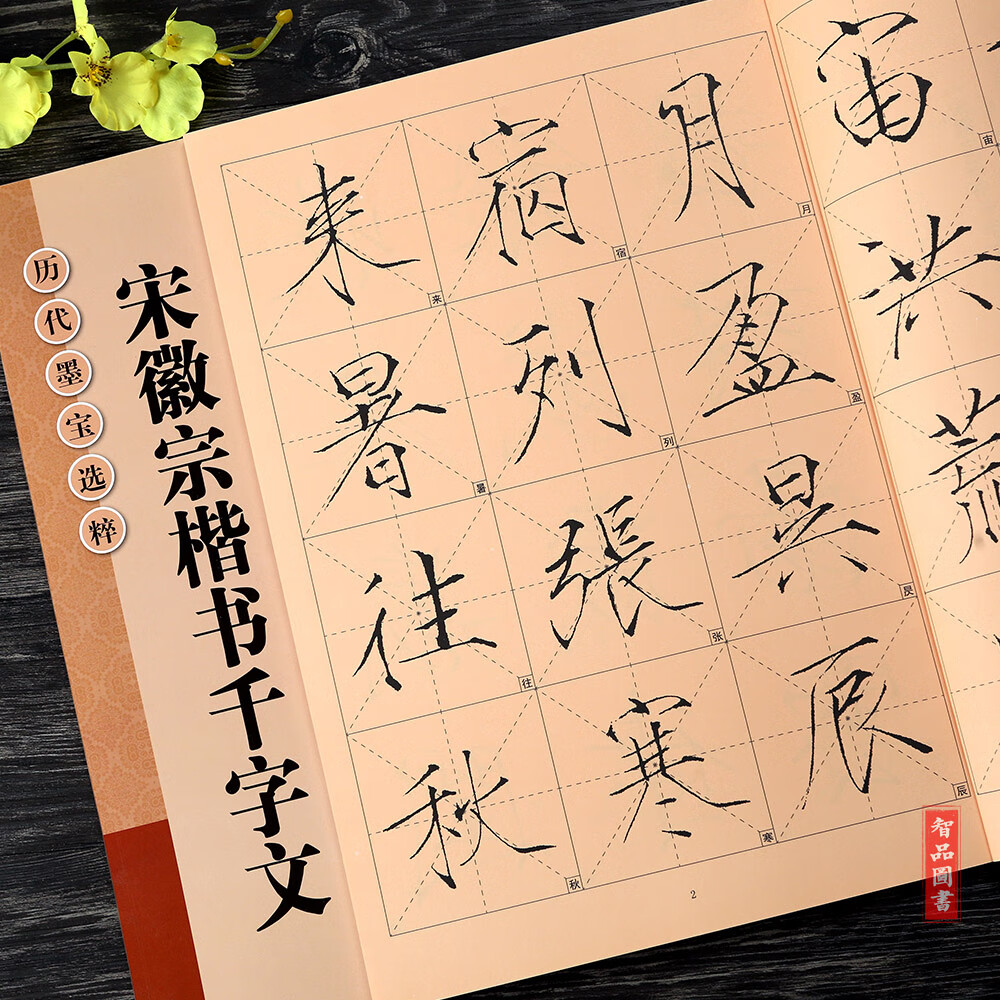 历代墨宝选粹
宋徽宗楷书千字文
宙洪荒
宙
月盈昃辰
月
盈
昃
辰
宿列張寒
宿
列
张
寒
来暑往秋
来
暑
往
秋
2
智品圖書